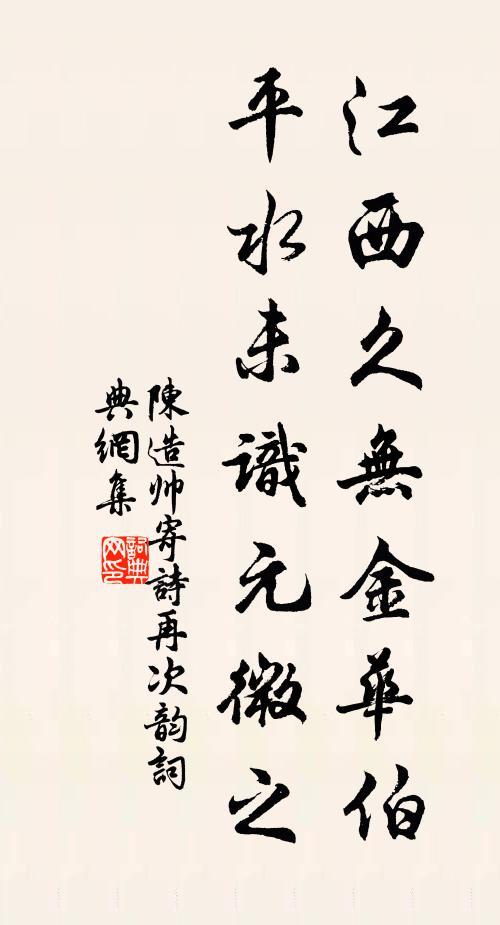 江西久無金華伯
平水未識元微之
陳造帅寄詩再次韵詞
典網集
詞典网印